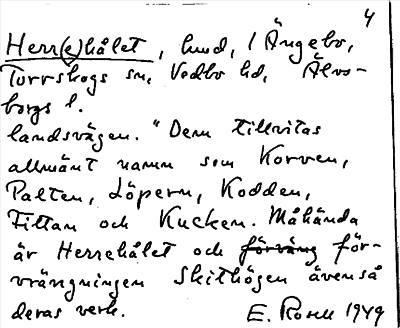 4
Herr(e)hålet, hmd, 1 Ängebo,
Torrskogs sn, Vedbo hd, Älvs-
borgs l.
landsvägen. "Dem tillvitas
allmänt namn som Korven,
Palten, Löpern, Kodden,
Fittan och Kucken. Måhända
är Herrehålet och förväng för-
vrängningen Skithögen även så
deras verk. E. Rosell 1949